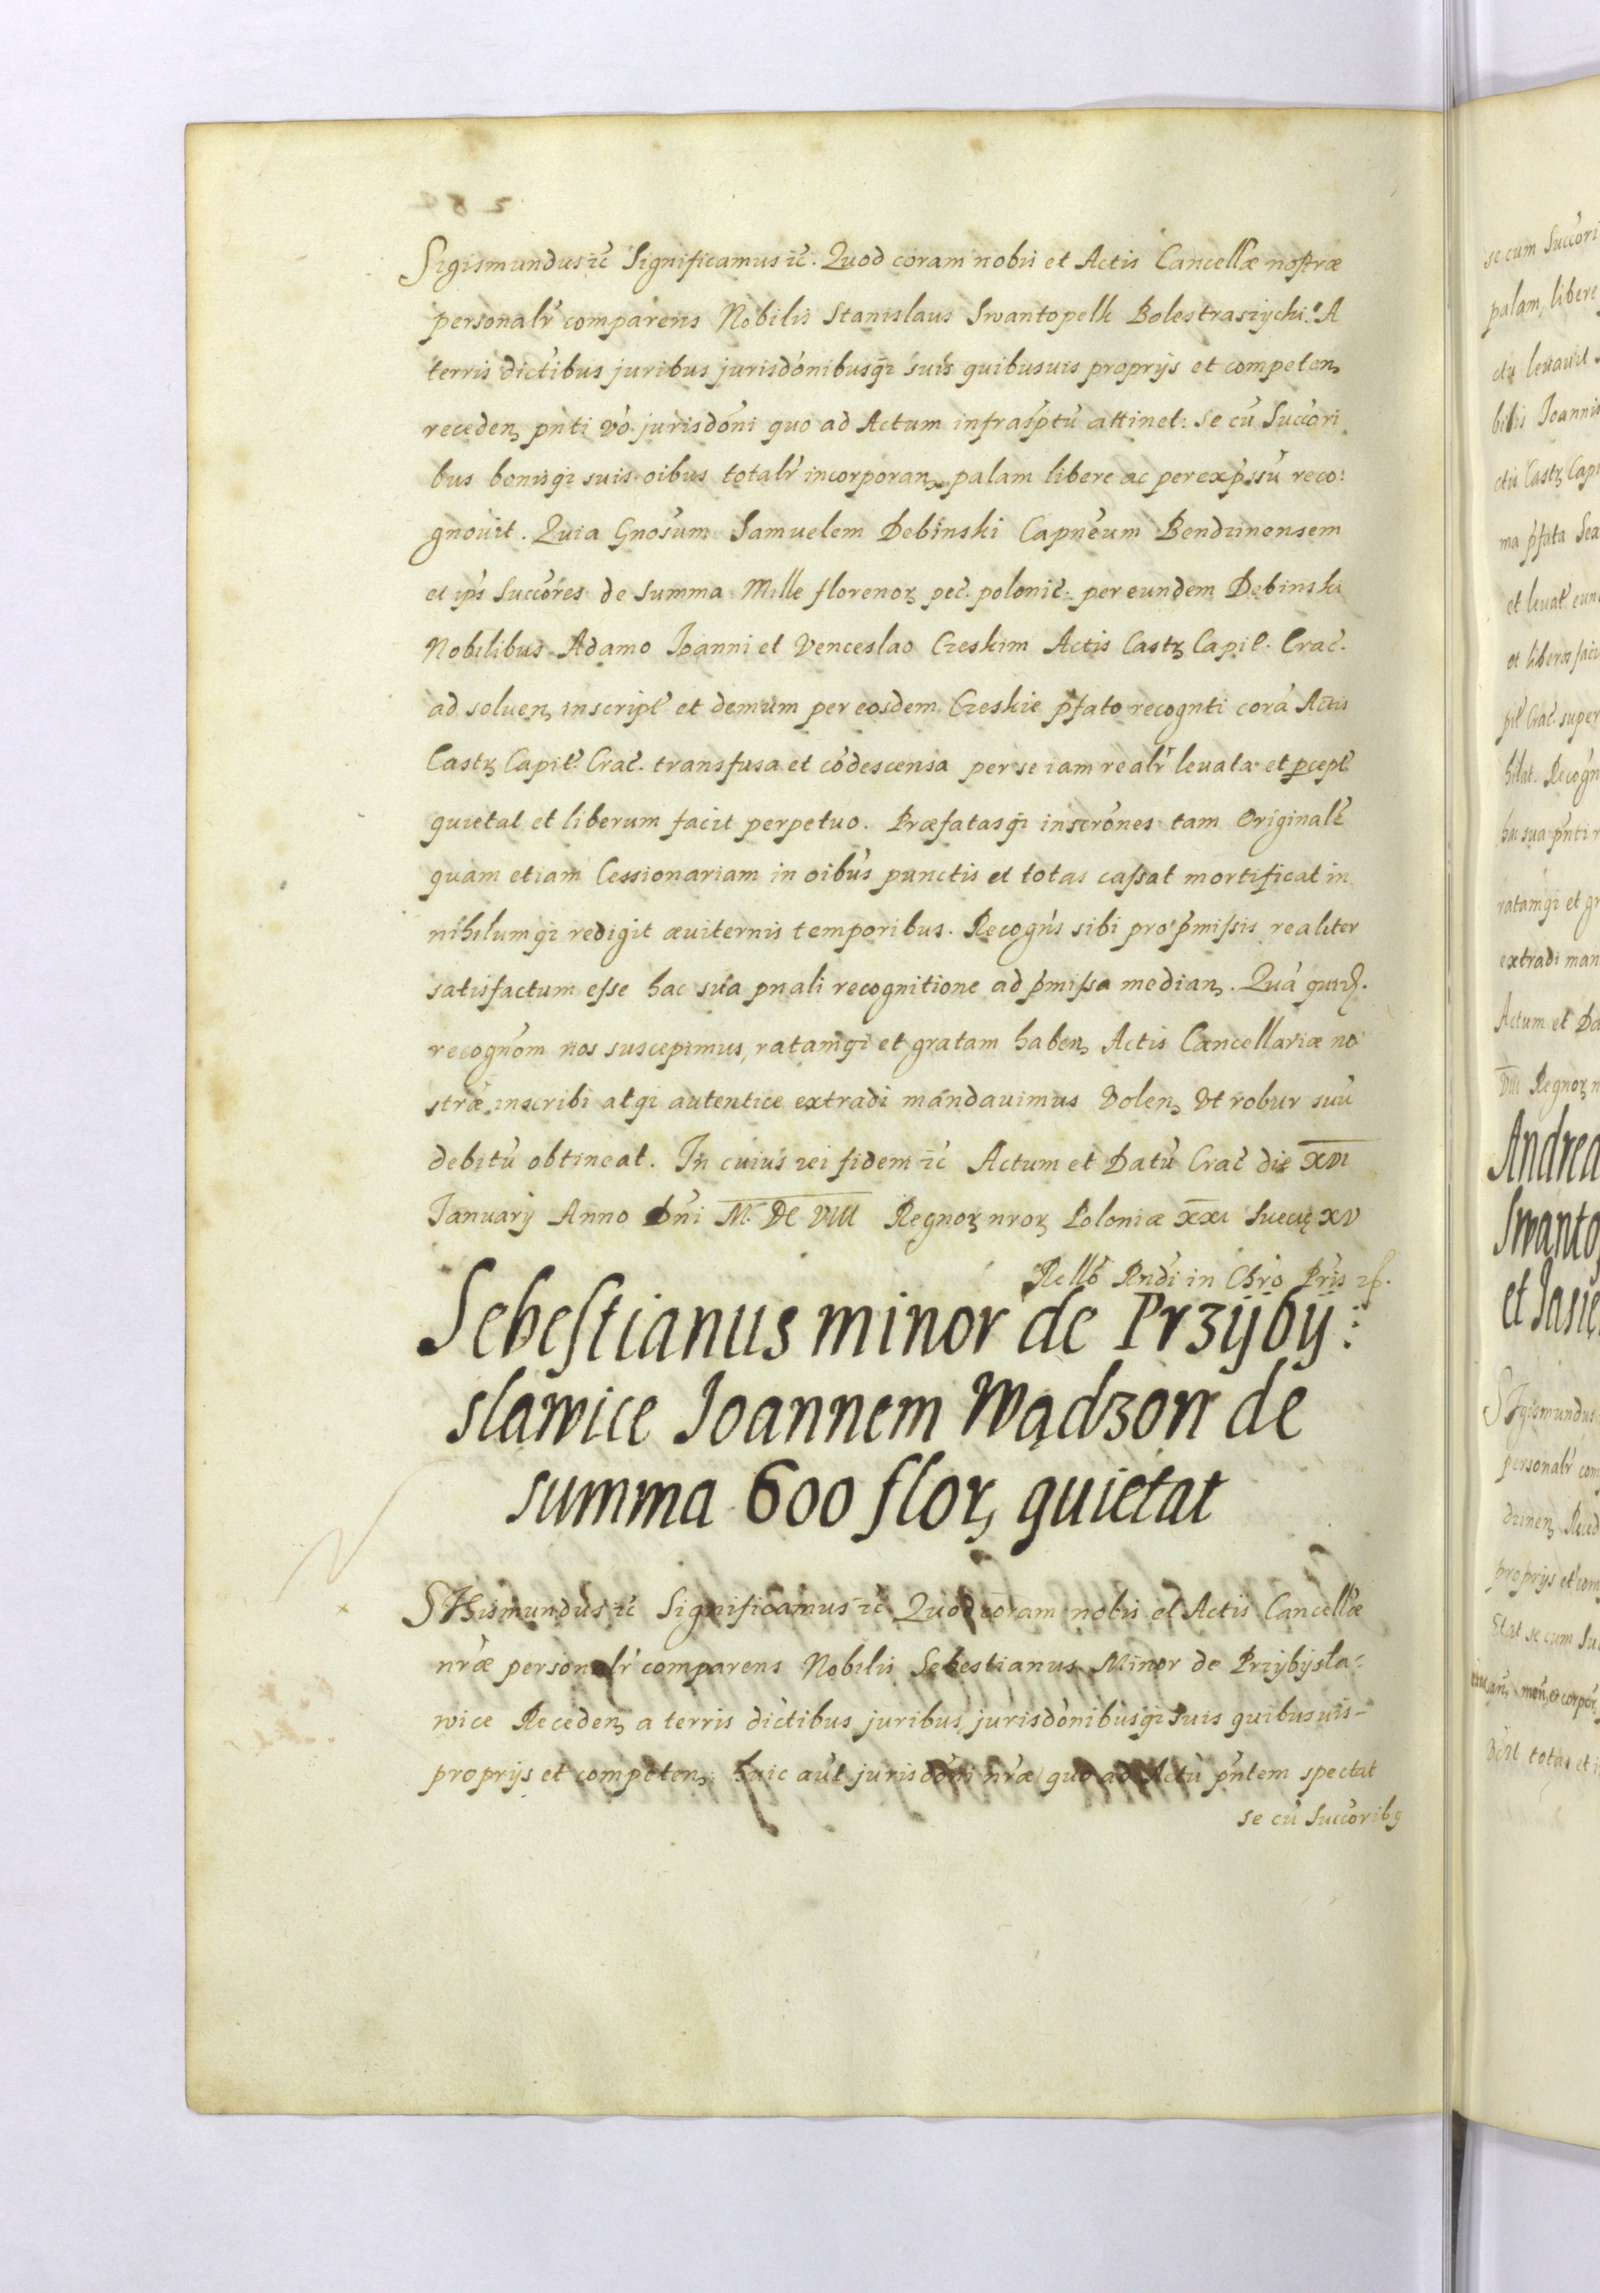 Sigismundus ꝛc̃ Significamus ꝛc̃. Quod coram nobis et Actis Cancellæ nostræ
personalr̃ comparens Nobilis Stanislaus Swantopelk Bolestrasziczki. A
terris dictibus juribus jurisdónibusqꝫ suis quibusuis proprijs et competenꝫ
recedenꝫ pñti vó jurisdóni quo ad Actum infrasptũ attinet: Se cũ Succori
bus bonisqꝫ suis oibus totalr̃ incorporanꝫ palam libere ac per expssũ reco:
gnouit. Quia Gnosum Samuelem Debinski Capñeum Bendzinensem
et ips̃ Succóres de Summa Mille florenoꝝ pec̃. polonic̃: per eundem Debinski
Nobilibus Adamo Joanni et Venceslao Czeskim Actis Castꝝ Capit̃. Crac̃.
ad soluenꝫ inscript̃ et demum per eosdem Czeskie pfato recognti corã Actis
Castꝝ Capit̃. Crac̃. transfusa et códescensa per se iam realr̃ leuata et pcept̃
quietat et liberum facit perpetuo. Præfatasqꝫ inscrónes tam Originalẽ
quam etiam Cessionariam in oibus punctis et totas cassat mortificat in
nihilumqꝫ redigit æuiternis temporibus. Recogñs sibi pro pmissis realiter
satisfactum esse hac sua pnali recognitione ad pmissa medianꝫ. Quã quidẽ.
recognõm nos suscepimus, ratamqꝫ et gratam habenꝫ Actis Cancellariæ no
stræ inscribi atqꝫ autentice extradi mandauimus Volenꝫ Vt robur suũ
debitũ obtineat. In cuius rei fidem ꝛc̃ Actum et Datũ Crac̃ die XVI
Januarij Anno Dñi M. DC VIII Regnoꝝ nroꝝ Poloniæ XXI Sueciæ XV
Rellõ Rndi in Chro Pris
Sebestianus minor de Przÿbÿ:
slawice Joannem Wądzow de
summa 600 floꝝ quietat
SIgismundus ꝛc̃ Significamus ꝛc̃ Quod coram nobis et Actis Cancellæ
nr̃æ personalr̃ comparens Nobilis Sebestianus Minor de Przÿbÿsla:
wice Recedenꝫ a terris dictibus juribus jurisdónibusqꝫ suis quibusuis
proprijs et competenꝫ huic aut̃ jurisdóni nr̃æ quo ad Actũ pñtem spectat
se cũ Succoribꝰ
se cum Succori
palam, libere
leuauit
bilis Joannis
Castꝝ Cap
ma pfata
et leuat̃ eun
et liberos faci
pit̃ Crac̃. super
Recogn
sua pñti
ratamqꝫ et gr
extradi man
Actum et Da
VIII Regnoꝝ n
Andrea
Swanto
et Jasie
SIgismundus
personalr̃ com
proprijs et com
se cum Su